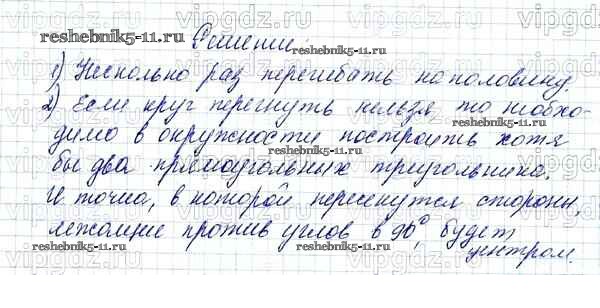 vipgdz.ru vipgdz.ru vipgdz.ru vipgdz.ru
reshebnik5-11.ru
Решение:
reshebnik5-11.ru
1) Несколько раз перегибать пополовину.
2) Если круг перегнуть нельзя, то необхо-
димо в окружности построить хотя
reshebnik5-11.ru
бы два прямоугольных треугольника.
И точка, в которой пересекутся стороны,
лежащие против углов в 90°, будет
reshebnik5-11.ru
центром.